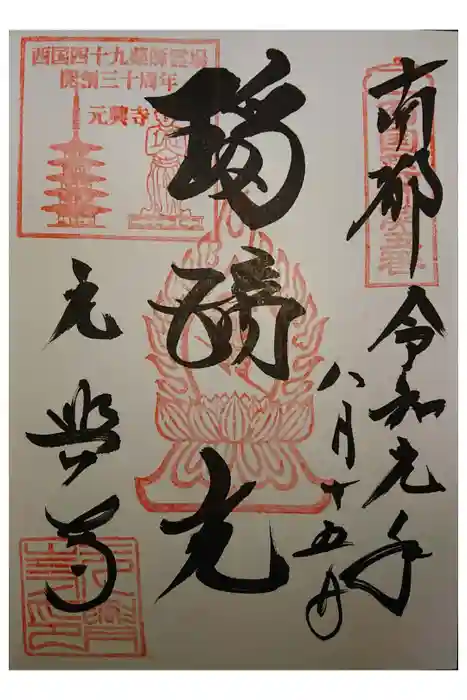 南都 令和元年
八月十五日
瑠璃光
西国四十九薬師霊場
開創三十周年
元興寺
元興寺